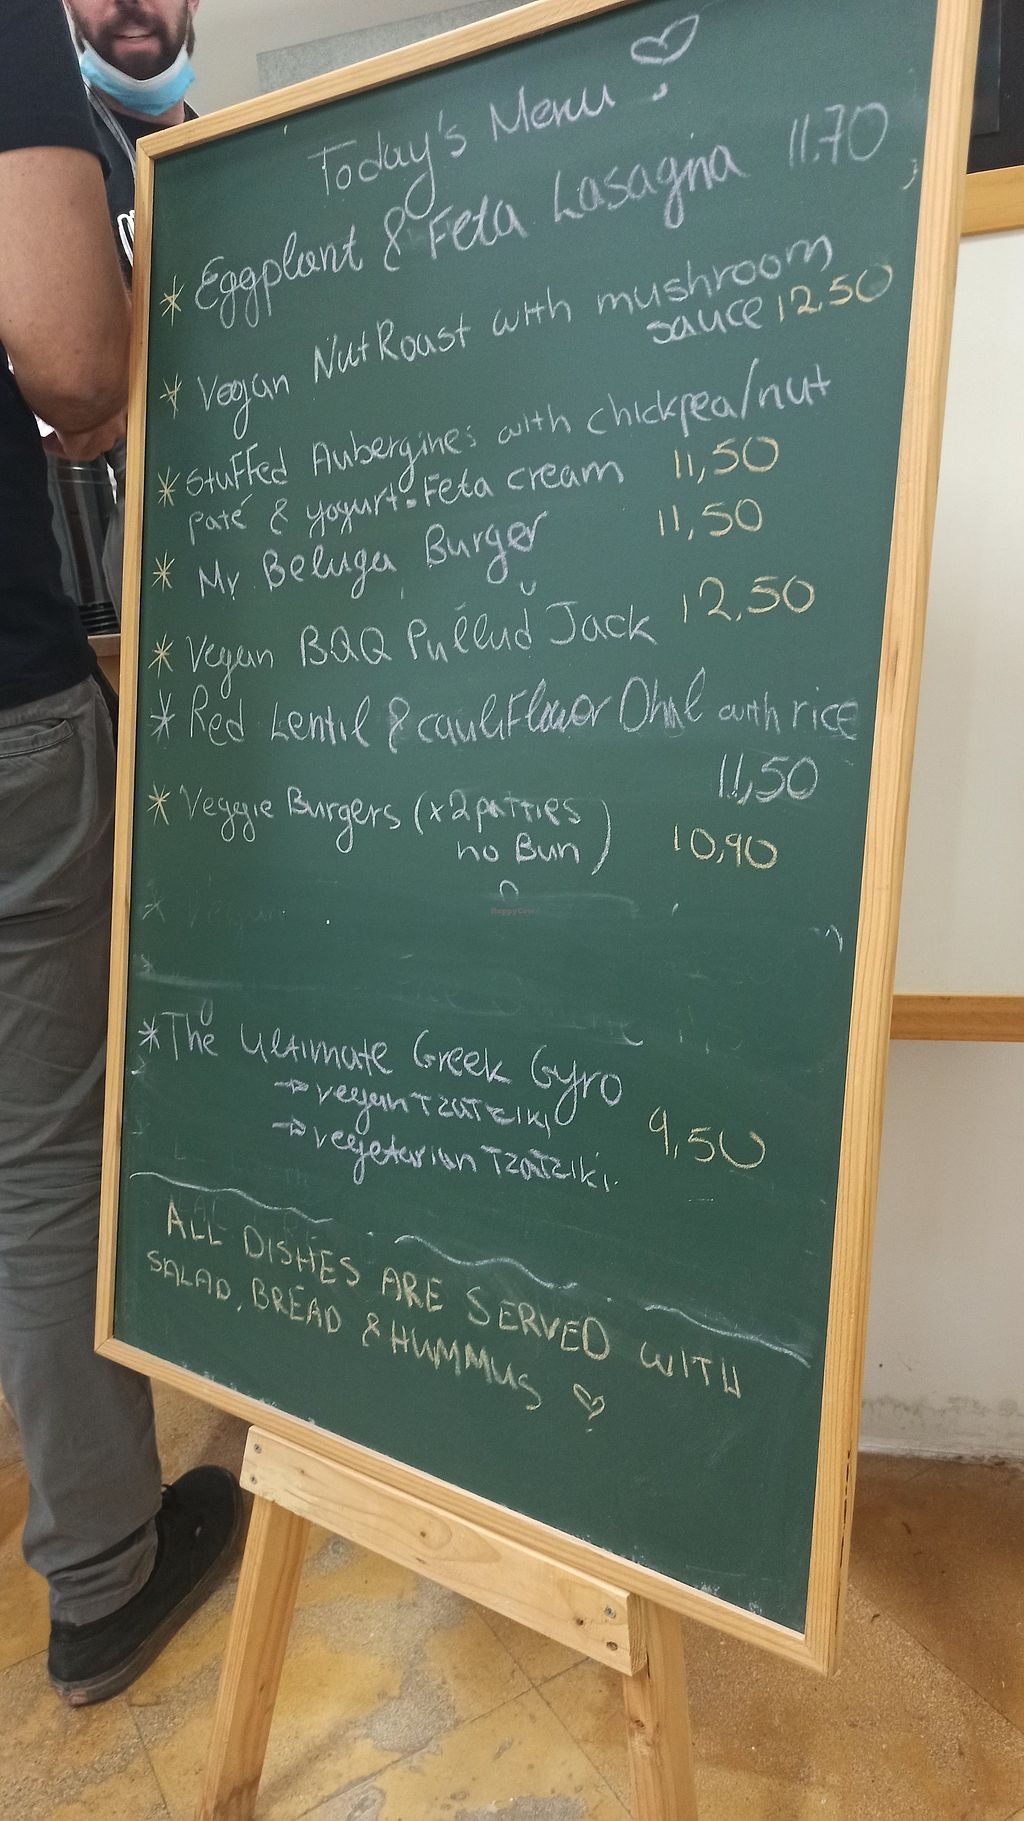 Today's Menu
* Eggplant & Feta Lasagna 11.70
* Vegan NutRoast with mushroom
sauce 12.50
* Stuffed Aubergines with chickpea/nut
paté & yogurt-Feta cream 11,50
* Mr Beluga Burger 11,50
* Vegan BQQ Pulled Jack 12,50
* Red Lentil & cauliFlower Dhal with rice
11,50
* Veggie Burgers (x2 patties
no Bun) 10,90
HappyCow
* The Ultimate Greek Gyro
→ vegan Tzatziki
→ vegetarian Tzatziki. 9,50
ALL DISHES ARE SERVED WITH
SALAD, BREAD & HUMMUS